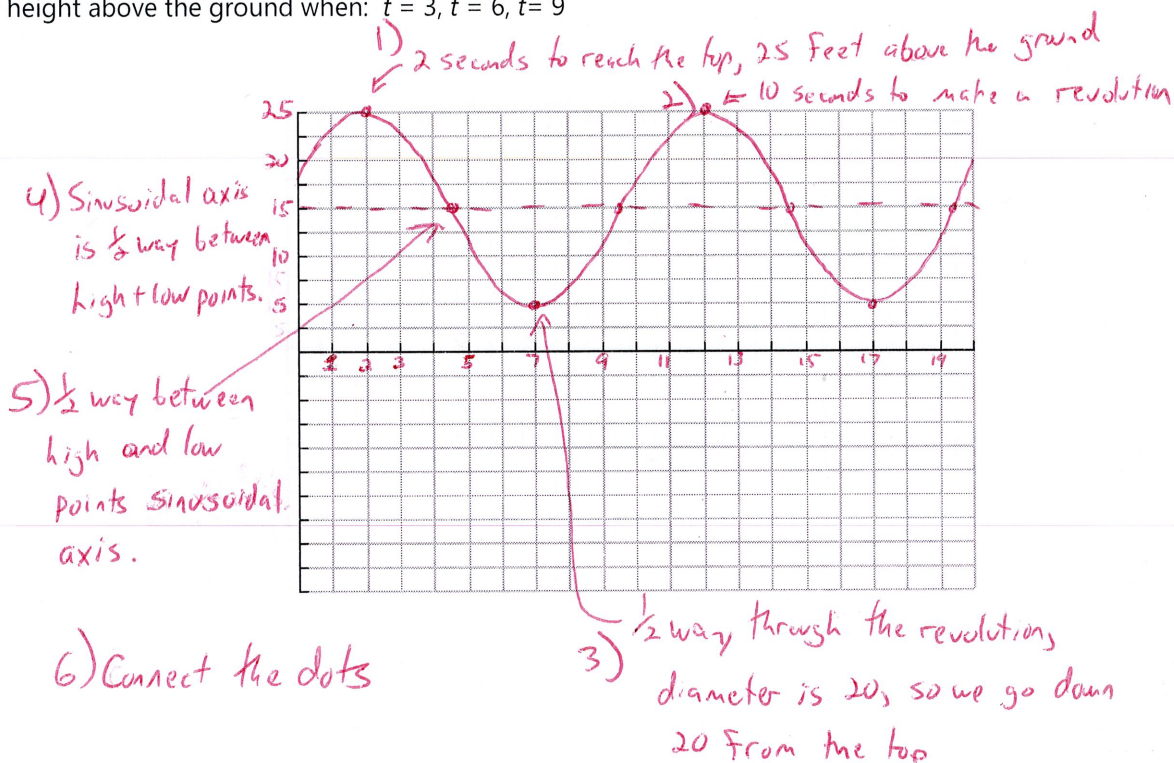 height above the ground when: t = 3, t = 6, t= 9
1)
2 seconds to reach the top, 25 feet above the ground
2) ← 10 seconds to make a revolution
25
20
4) Sinusoidal axis
is ½ way between
high + low points.
15
10
5
1 2 3 5 7 9 11 13 15 17 19
5) ½ way between
high and low
points sinusoidal
axis.
3) ½ way through the revolution,
diameter is 20, so we go down
20 from the top
6) Connect the dots